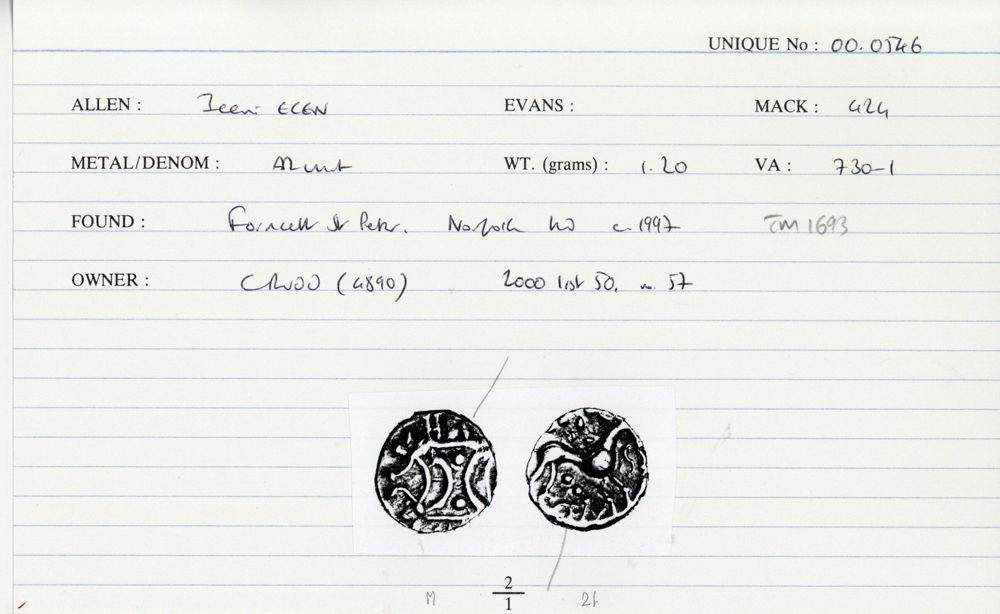 UNIQUE No : 00.0546
ALLEN : Iceni ECEN EVANS : MACK : 424
METAL/DENOM : AR unit WT. (grams) : 1.20 VA : 730-1
FOUND : Forncett St Peter, Norfolk MD c. 1997 TM 1693
OWNER : CRUDD (4890) 2000 list 50, no. 57
M 2/1 21